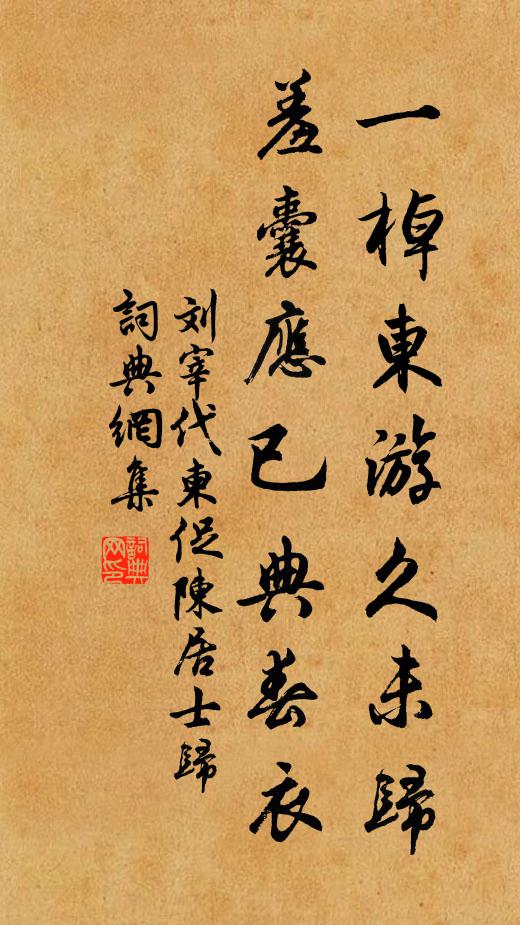 一棹東游久未歸
羞囊應已典春衣
刘宰代東促陳居士歸
詞典網集
詞典网印